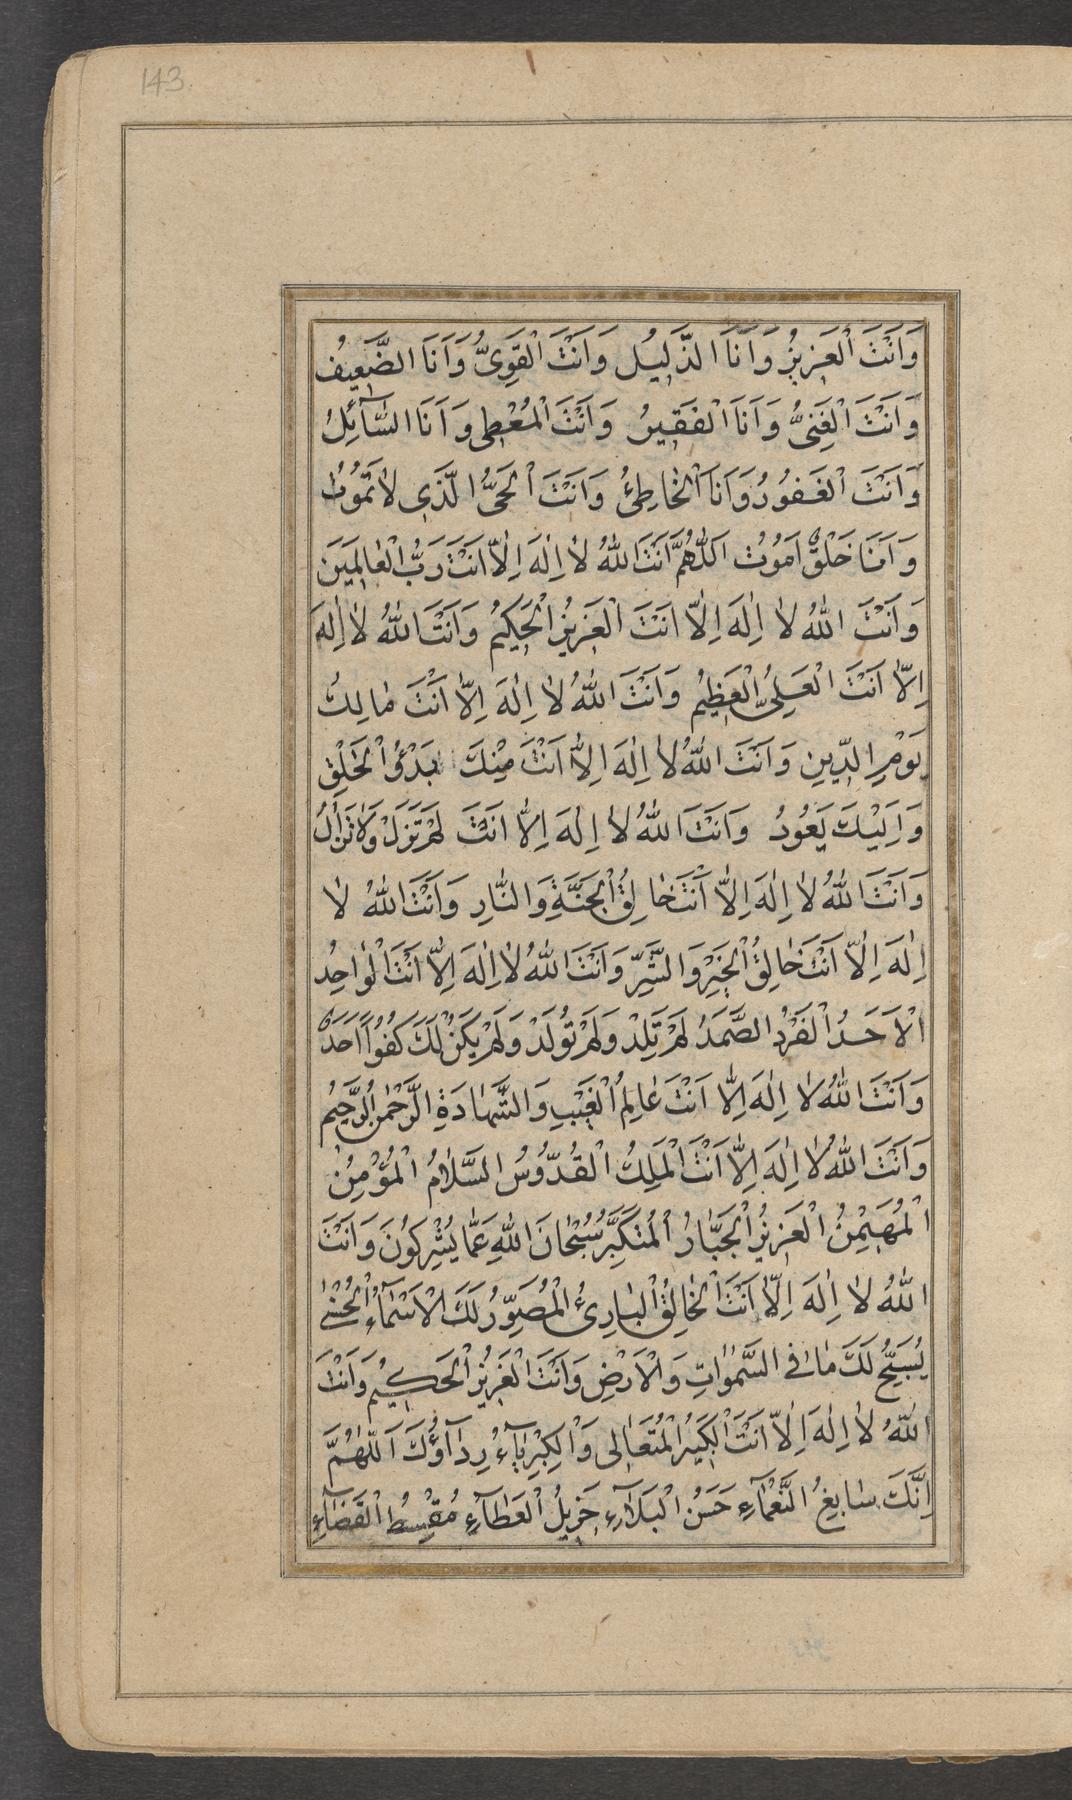 143
وَاَنْتَ الْعَزِيزُ وَاَنَا الذَّلِيل وَاَنْتَ الْقَوِىُّ وَاَنَا الضَّعِيفُ
وَاَنْتَ الْغَنِىُّ وَاَنَا الْفَقِيرُ وَاَنْتَ الْمُعْطِى وَاَنَا السَّآئِلُ
وَاَنْتَ الْغَفُورُ وَاَنَا الْخَاطِئُ وَاَنْتَ الْحَىُّ الَّذِى لَا تَمُوتُ
وَاَنَا خَلْقٌ اَمُوتُ اَللّٰهُمَّ اَنْتَ اللّٰهُ لَا اِلٰهَ اِلَّا اَنْتَ رَبُّ الْعَالَمِينَ
وَاَنْتَ اللّٰهُ لَا اِلٰهَ اِلَّا اَنْتَ الْعَزِيزُ الْحَكِيمُ وَاَنْتَ اللّٰهُ لَا اِلٰهَ
اِلَّا اَنْتَ الْعَلِىُّ الْعَظِيمُ وَاَنْتَ اللّٰهُ لَا اِلٰهَ اِلَّا اَنْتَ مَالِكُ
يَوْمِ الدِّينِ وَاَنْتَ اللّٰهُ لَا اِلٰهَ اِلَّا اَنْتَ مِنْكَ بَدْؤُ الْخَلْقِ
وَاِلَيْكَ يَعُودُ وَاَنْتَ اللّٰهُ لَا اِلٰهَ اِلَّا اَنْتَ لَمْ تَزَلْ وَلَا تَزَالُ
وَاَنْتَ اللّٰهُ لَا اِلٰهَ اِلَّا اَنْتَ خَالِقُ الْجَنَّةِ وَالنَّارِ وَاَنْتَ اللّٰهُ لَا
اِلٰهَ اِلَّا اَنْتَ خَالِقُ الْخَيْرِ وَالشَّرِّ وَاَنْتَ اللّٰهُ لَا اِلٰهَ اِلَّا اَنْتَ الْوَاحِدُ
الْاَحَدُ الْفَرْدُ الصَّمَدُ لَمْ تَلِدْ وَلَمْ تُولَدْ وَلَمْ يَكُنْ لَكَ كُفُوًا اَحَدٌ
وَاَنْتَ اللّٰهُ لَا اِلٰهَ اِلَّا اَنْتَ عَالِمُ الْغَيْبِ وَالشَّهَادَةِ الرَّحْمٰنُ الرَّحِيمُ
وَاَنْتَ اللّٰهُ لَا اِلٰهَ اِلَّا اَنْتَ الْمَلِكُ الْقُدُّوسُ السَّلَامُ الْمُؤْمِنُ
الْمُهَيْمِنُ الْعَزِيزُ الْجَبَّارُ الْمُتَكَبِّرُ سُبْحَانَ اللّٰهِ عَمَّا يُشْرِكُونَ وَاَنْتَ
اللّٰهُ لَا اِلٰهَ اِلَّا اَنْتَ الْخَالِقُ الْبَارِئُ الْمُصَوِّرُ لَكَ الْاَسْمَآءُ الْحُسْنٰى
يُسَبِّحُ لَكَ مَا فِى السَّمٰوَاتِ وَالْاَرْضِ وَاَنْتَ الْعَزِيزُ الْحَكِيمُ وَاَنْتَ
اللّٰهُ لَا اِلٰهَ اِلَّا اَنْتَ الْكَبِيرُ الْمُتَعَالِى وَالْكِبْرِيَآءُ رِدَآؤُكَ اَللّٰهُمَّ
اِنَّكَ سَابِغُ النَّعْمَآءِ حَسَنُ الْبَلَآءِ جَزِيلُ الْعَطَآءِ مُقْسِطُ الْقَضَآءِ